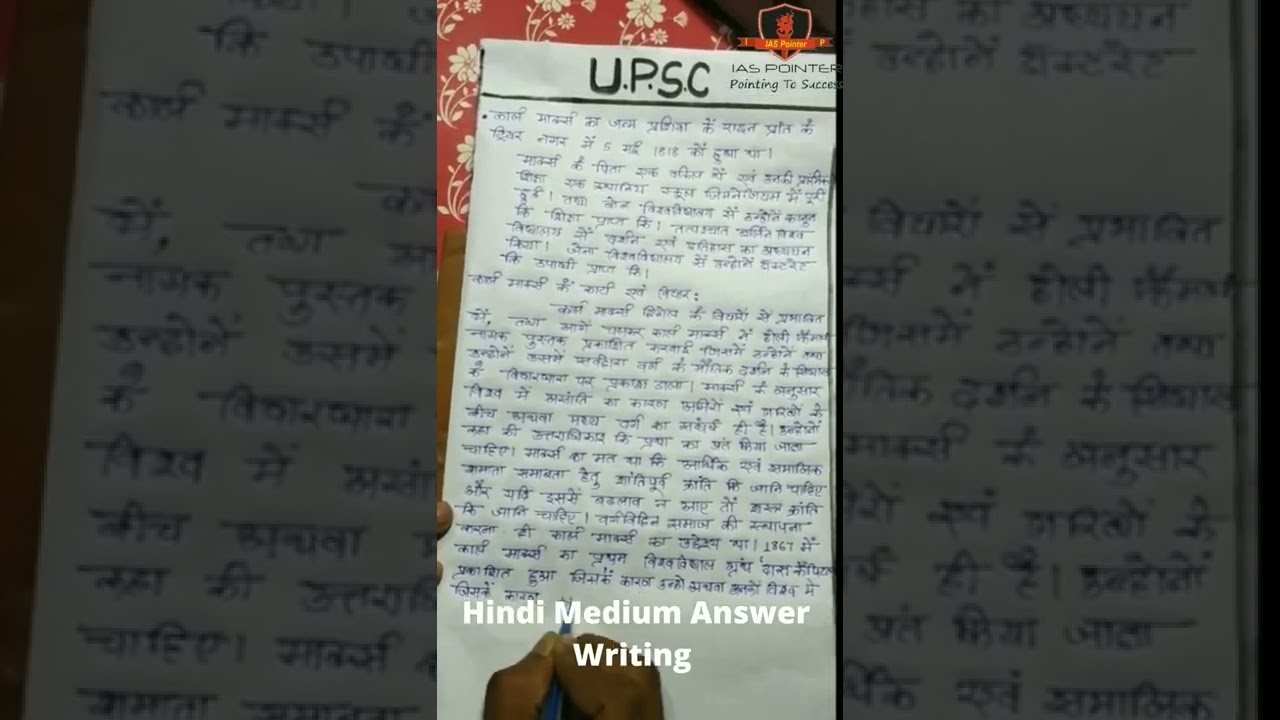 IAS Pointer
IAS POINTER
Pointing To Success
U.P.S.C
• कार्ल मार्क्स का जन्म प्रशिया के राइन प्रांत के
ट्रियर नगर में 5 मई 1818 को हुआ था।
मार्क्स के पिता एक वकिल थे एवं उनकी प्रारंभिक
शिक्षा एक स्थानिय स्कूल जिमनेजियम में पूरी
हुई। तथा बोन विश्वविद्यालय से उन्होने कानून
कि शिक्षा प्राप्त कि। तत्पश्चात बर्लिन विश्व
विद्यालय से दर्शन एवं इतिहास का अध्ययन
किया। जेना विश्वविद्यालय से उन्होने डाक्टरेट
कि उपाधी प्राप्त कि।
कार्ल मार्क्स के कार्य एवं विचार:
कार्ल मार्क्स हिगेल के विचारों से प्रभावित
थे, तथा आगे चलकर कार्ल मार्क्स ने होली फैमली
नामक पुस्तक प्रकाशित करवाई जिसमें उन्होने तथा
उन्होनें उसमें सर्वहारा वर्ग के भौतिक दर्शन के सिधांत
के विचारधारा पर प्रकाश डाला। मार्क्स के अनुसार
विश्व में अशांति का कारण अमिरों एवं गरिबो के
बीच अथवा मध्य वर्ग का संघर्ष ही है। उन्होनें
कहा की उत्तराधिकार कि प्रथा का अंत किया जाना
चाहिए। मार्क्स का मत था कि आर्थिक एवं समाजिक
समानता हेतु शांतिपूर्ण क्रांति कि जानि चाहिए
और यदि इससे बदलाव न आए तो सशस्त्र क्रांति
कि जानि चाहिए। वर्गविहिन समाज की स्थापना
करना ही कार्ल मार्क्स का उद्देश्य था। 1867 में
कार्ल मार्क्स का प्रथम विश्वविख्यात ग्रंथ 'दास कैपिटल
प्रकाशित हुआ जिसके कारण उनको अथवा उनको विश्व में
जिसके कारण
Hindi Medium Answer
Writing